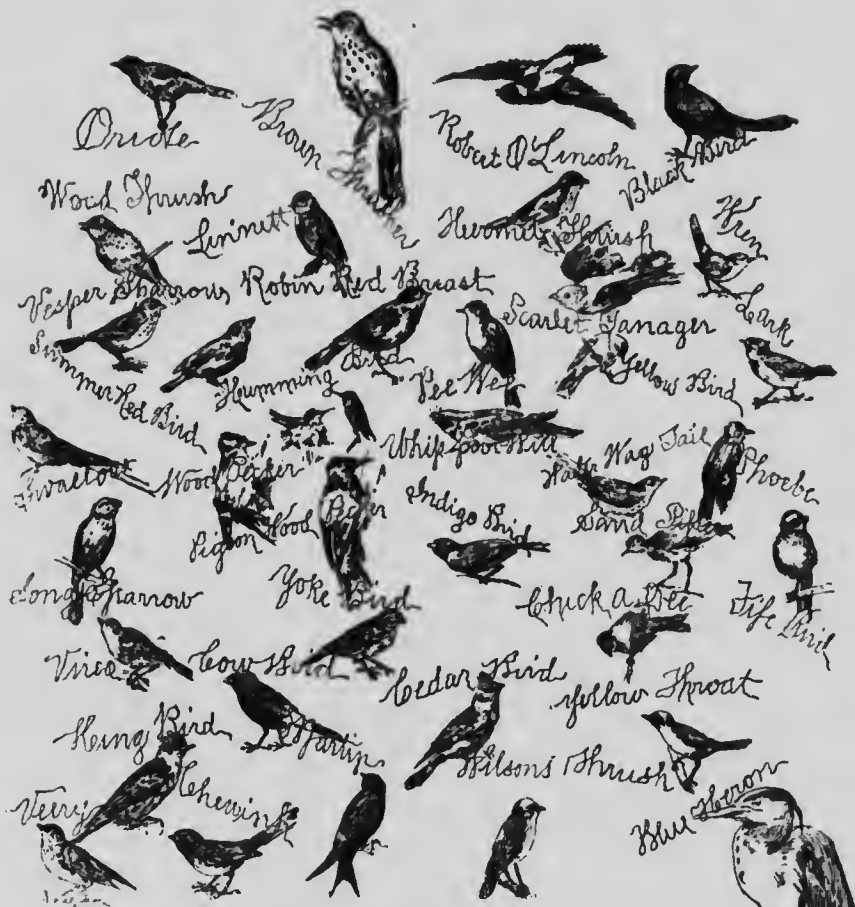 Oriole
Brown Thrasher
Robert O'Lincoln
Black Bird
Wood Thrush
Linnett
Hermit Thrush
Wren
Vesper Sparrow
Robin Red Breast
Scarlet Tanager
Lark
Summer Red Bird
Humming Bird
Pee Wee
Yellow Bird
Swallow
Wood Pecker
Whip-poor-Will
Water Wag Tail
Phoebe
Pigeon Wood Pecker
Indigo Bird
Sand Piper
Song Sparrow
Yoke Bird
Chick a Dee
Fife Bird
Vireo
Cow Bird
Cedar Bird
Yellow Throat
King Bird
Martin
Wilsons Thrush
Veery
Chewink
Blue Heron